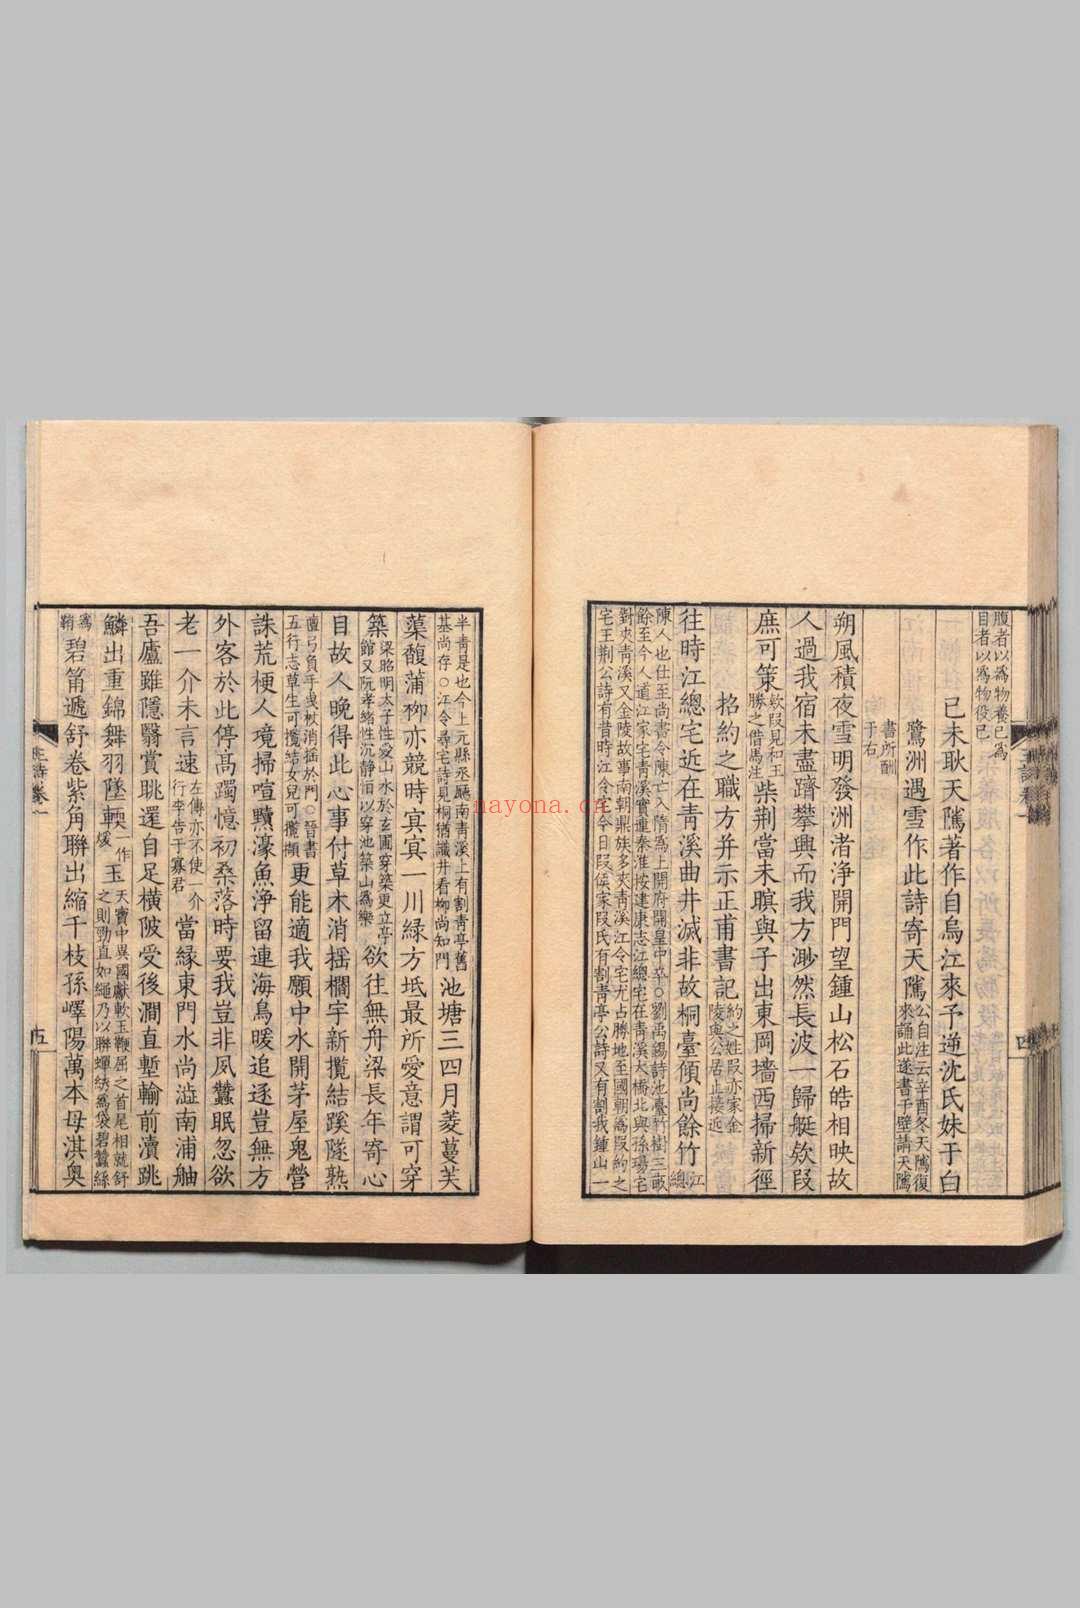 腹者以爲物養已爲
目者以爲物役已
己未耿天騭著作自烏江來予逆沈氏妹于白
鷺洲遇雪作此詩寄天騭公自注云辛酉冬天騭復
來誦此遂書于壁請天騭
書所酬
于右
朔風積夜雪明發洲渚淨開門望鍾山松石皓相映故
人過我宿未盡躋攀興而我方渺然長波一歸艇欸段
庶可策欸段見和王
勝之借馬注柴荆當未瞑與子出東岡墻西掃新徑
招約之職方并示正甫書記約之姓段亦家金
陵與公居止接近
往時江總宅近在青溪曲井滅非故桐臺傾尚餘竹江
總
陳人也仕至尚書令陳亡入隋爲上開府開皇中卒○劉禹錫詩池臺竹樹三畝
餘至今人道江家宅青溪實連秦淮按建康志江總宅在青溪大橋北與孫瑒宅
對夾青溪又金陵故事南朝鼎族多夾青溪江令宅尤占勝地至國朝爲段約之
宅王荆公詩有昔時江令宅今日段侯家段氏有割青亭公詩又有割我鍾山一
半青是也今上元縣丞廳南青溪上有割青亭舊
基尚存○江令尋宅詩見桐猶識井看柳尚知門池塘三四月菱蔓芙
蕖馥蒲柳亦競時冥冥一川綠方坻最所愛意謂可穿
築梁昭明太子性愛山水於玄圃穿築更立亭
館又阮孝緒性沉靜恒以穿池築山爲樂欲往無舟梁長年寄心
目故人晚得此心事付草木消摇檷宇新攬結蹊隧熟
檀弓負手曳杖消摇於門○晉書
五行志草生可攬結女兒可攬擷更能適我願中水開茅屋鬼營
誅荒梗人境掃喧黷濠魚淨留連海鳥暖追逐豈無方
外客於此停高躅憶初桑落時要我豈非夙蠶眠忽欲
老一介未言速左傳亦不使一介
行李告于寡君當緣東門水尚澁南浦舳
吾廬雖隱翳賞眺還自足横陂受後澗直塹輸前瀆跳
鱗出重錦舞羽墜䎡一作
煖玉天寶中異國獻軟玉鞭屈之首尾相就舒
之則勁直如繩乃以聯蟬綉爲袋碧蠶絲
爲
鞘碧筩遞舒卷紫角聯出縮千枝孫嶧陽萬本母淇奥
王詩卷一
四
五
nayona.cn